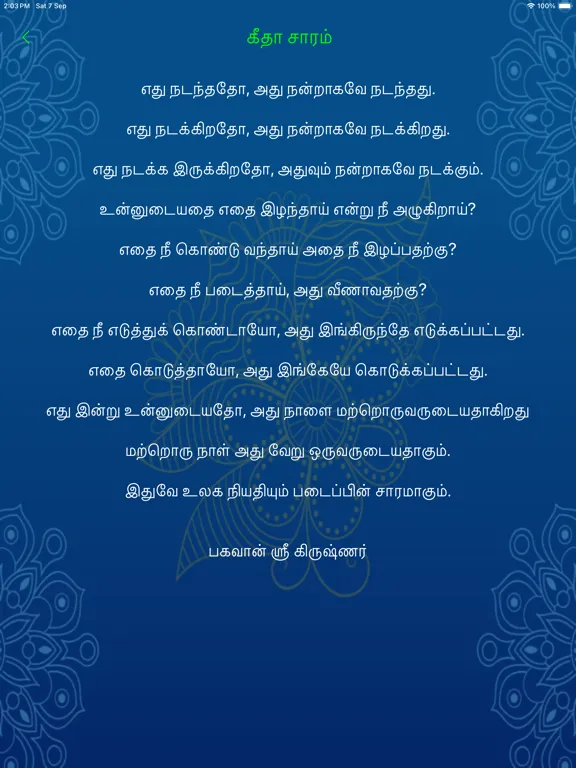 2:03 PM Sat 7 Sep 100%
கீதா சாரம்
எது நடந்ததோ, அது நன்றாகவே நடந்தது.
எது நடக்கிறதோ, அது நன்றாகவே நடக்கிறது.
எது நடக்க இருக்கிறதோ, அதுவும் நன்றாகவே நடக்கும்.
உன்னுடையதை எதை இழந்தாய் என்று நீ அழுகிறாய்?
எதை நீ கொண்டு வந்தாய் அதை நீ இழப்பதற்கு?
எதை நீ படைத்தாய், அது வீணாவதற்கு?
எதை நீ எடுத்துக் கொண்டாயோ, அது இங்கிருந்தே எடுக்கப்பட்டது.
எதை கொடுத்தாயோ, அது இங்கேயே கொடுக்கப்பட்டது.
எது இன்று உன்னுடையதோ, அது நாளை மற்றொருவருடையதாகிறது
மற்றொரு நாள் அது வேறு ஒருவருடையதாகும்.
இதுவே உலக நியதியும் படைப்பின் சாரமாகும்.
பகவான் ஸ்ரீ கிருஷ்ணர்